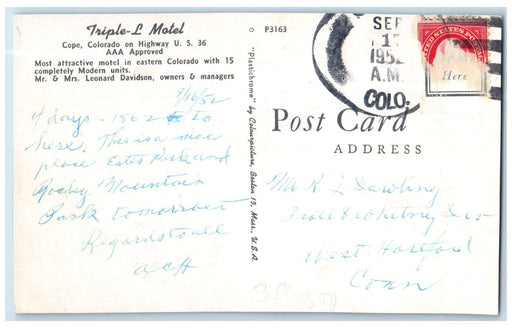 Triple-L Motel
Cope, Colorado on Highway U. S. 36
AAA Approved
Most attractive motel in eastern Colorado with 15
completely Modern units.
Mr. & Mrs. Leonard Davidson, owners & managers
9/16/52
4 days - 1862 to
here. This is a nice
place Estes Park and
Rocky Mountain
Park tomorrow
Regards to all
ACH
P3163
"Plastichrome" by Colourpicture, Boston 15, Mass., U.S.A.
SEP
17
1952
A.M.
COLO.
UNITED STATES POST
Here
Post Card
ADDRESS
Mr R L Dowling
Pratt & Whitney & Co
West Hartford
Conn